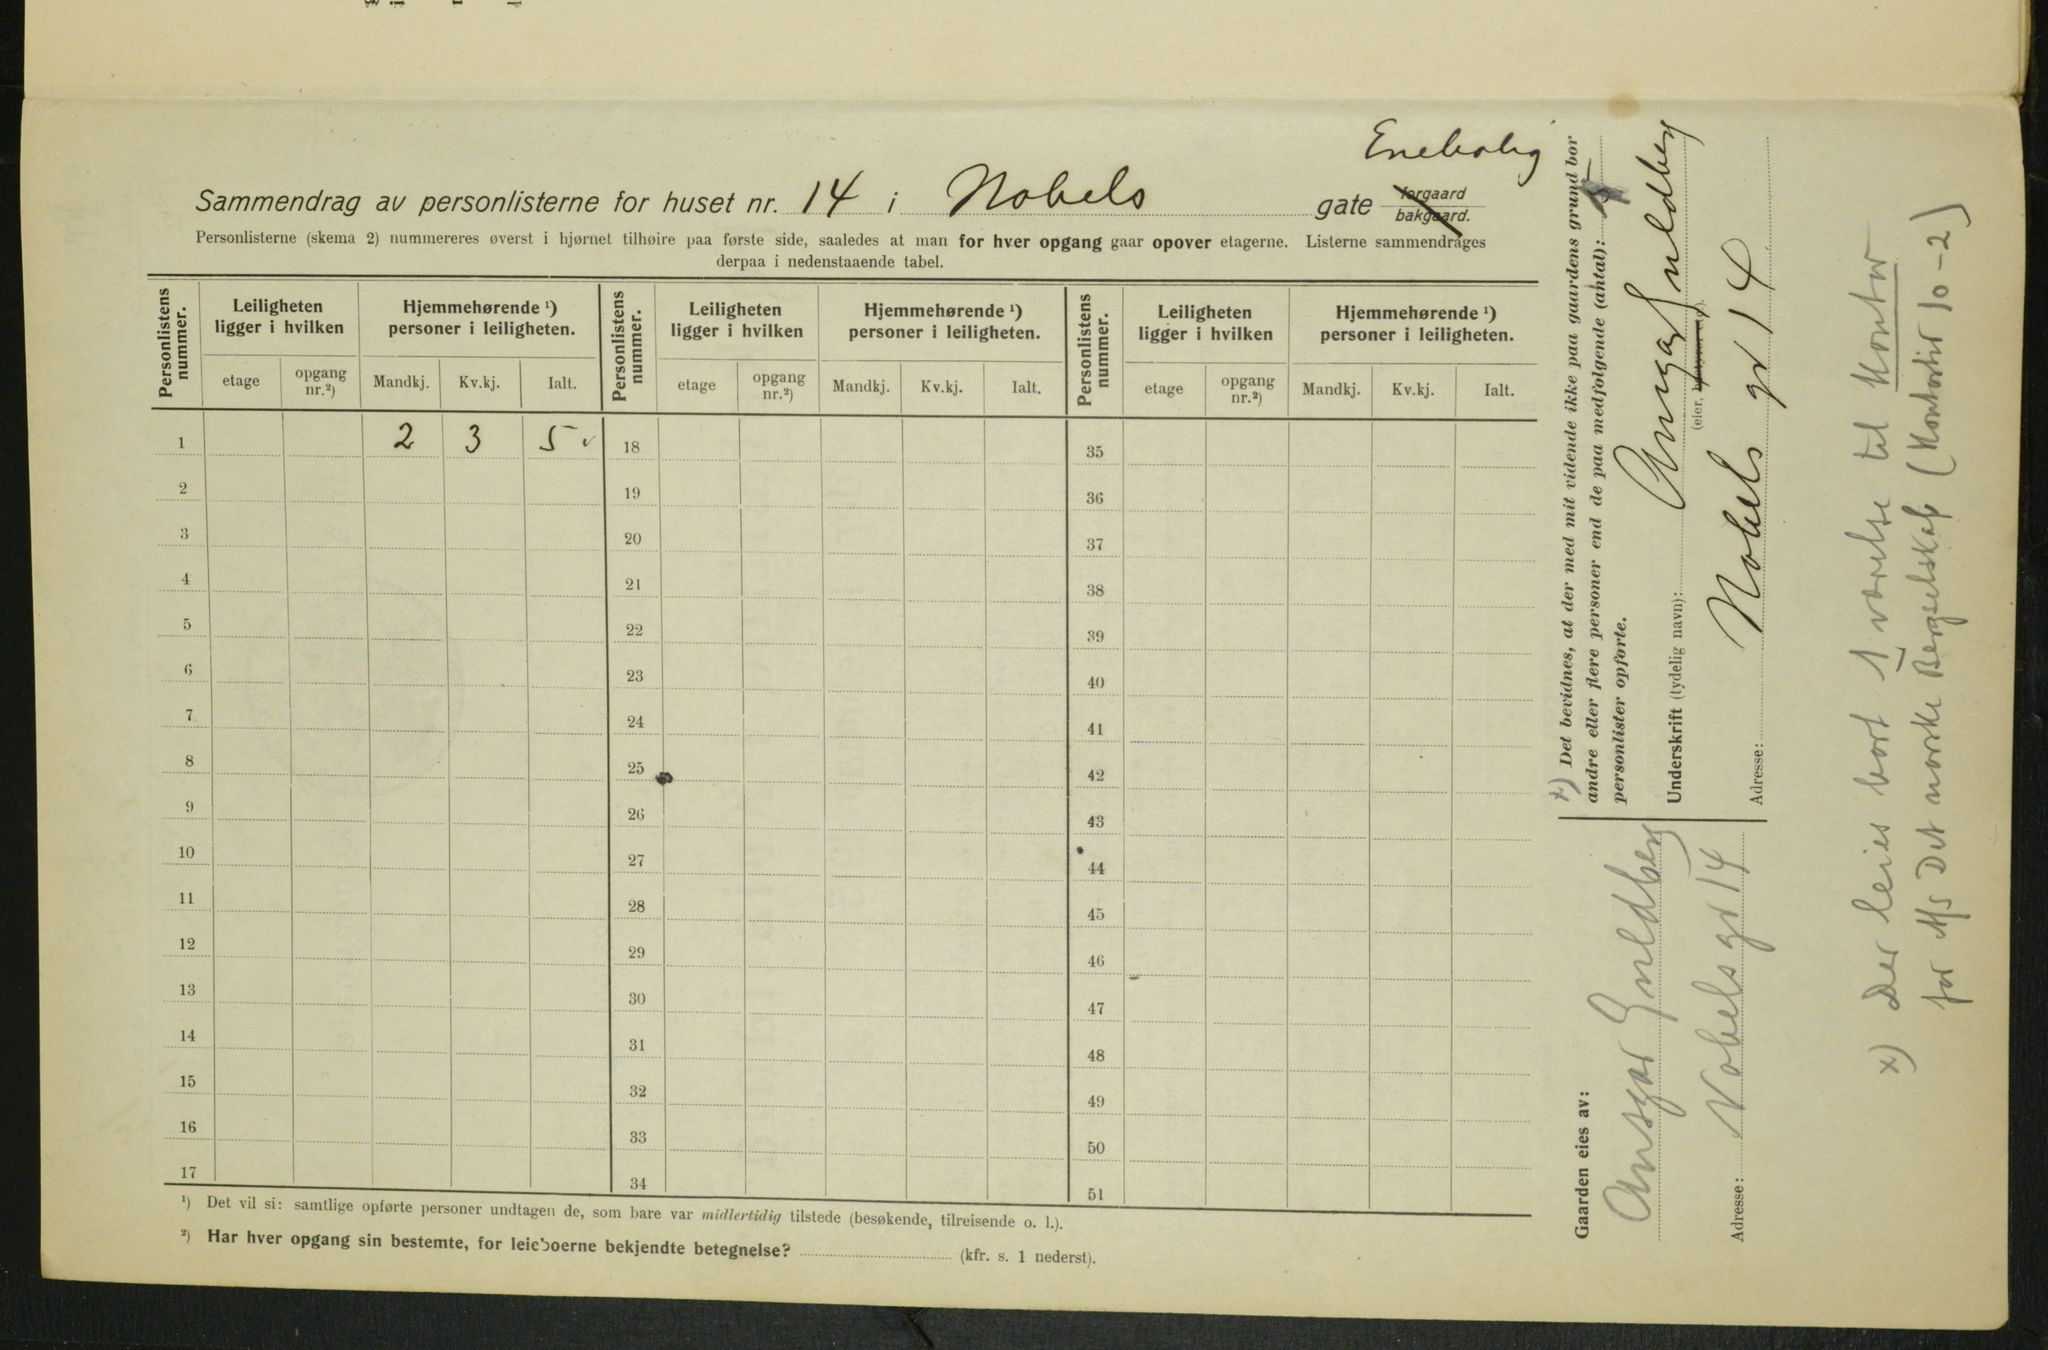 Enebolig
Sammendrag av personlisterne for huset nr. 14 i Nobels gate forgaard bakgaard.
Personlisterne (skema 2) nummereres øverst i hjørnet tilhøire paa første side, saaledes at man for hver opgang gaar opover etagerne. Listerne sammendrages
derpaa i nedenstaaende tabel.
Personlistens nummer. Leiligheten ligger i hvilken Hjemmehørende ¹) personer i leiligheten. Personlistens nummer. Leiligheten ligger i hvilken Hjemmehørende ¹) personer i leiligheten. Personlistens nummer. Leiligheten ligger i hvilken Hjemmehørende ¹) personer i leiligheten.
etage opgang nr.²) Mandkj. Kv.kj. Ialt. etage opgang nr.²) Mandkj. Kv.kj. Ialt. etage opgang nr.²) Mandkj. Kv.kj. Ialt.
1 2 3 5 18 35
2 19 36
3 20 37
4 21 38
5 22 39
6 23 40
7 24 41
8 25 42
9 26 43
10 27 44
11 28 45
12 29 46
13 30 47
14 31 48
15 32 49
16 33 50
17 34 51
¹) Det vil si: samtlige opførte personer undtagen de, som bare var midlertidig tilstede (besøkende, tilreisende o. l.).
²) Har hver opgang sin bestemte, for leieboerne bekjendte betegnelse? (kfr. s. 1 nederst).
x) Det bevidnes, at der med mit vidende ikke paa gaardens grund bor
andre eller flere personer end de paa medfølgende (antal):
personlister opførte.
Underskrift (tydelig navn): Ansgar Guldberg
(eier,
Adresse: Nobels gt 14
Gaarden eies av:
Ansgar Guldberg
Adresse: Nobels gt 14
x) Der leies bort 1 værelse til Kontor
for A/S Det norske Bergselskap (Kontortid 10-2)